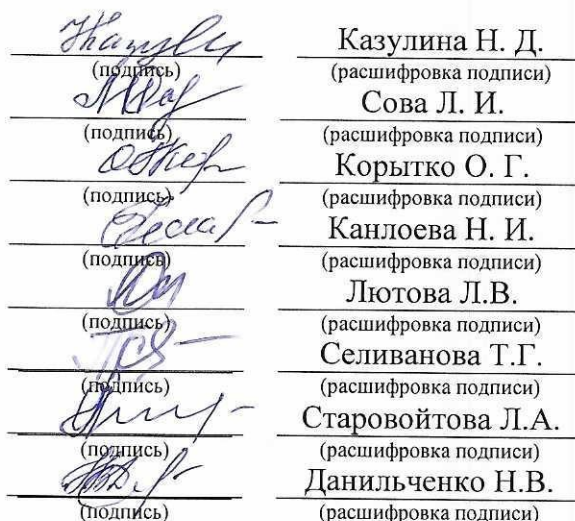 Казулина Н. Д.
(подпись) (расшифровка подписи)
Сова Л. И.
(подпись) (расшифровка подписи)
Корытко О. Г.
(подпись) (расшифровка подписи)
Канлоева Н. И.
(подпись) (расшифровка подписи)
Лютова Л.В.
(подпись) (расшифровка подписи)
Селиванова Т.Г.
(подпись) (расшифровка подписи)
Старовойтова Л.А.
(подпись) (расшифровка подписи)
Данильченко Н.В.
(подпись) (расшифровка подписи)